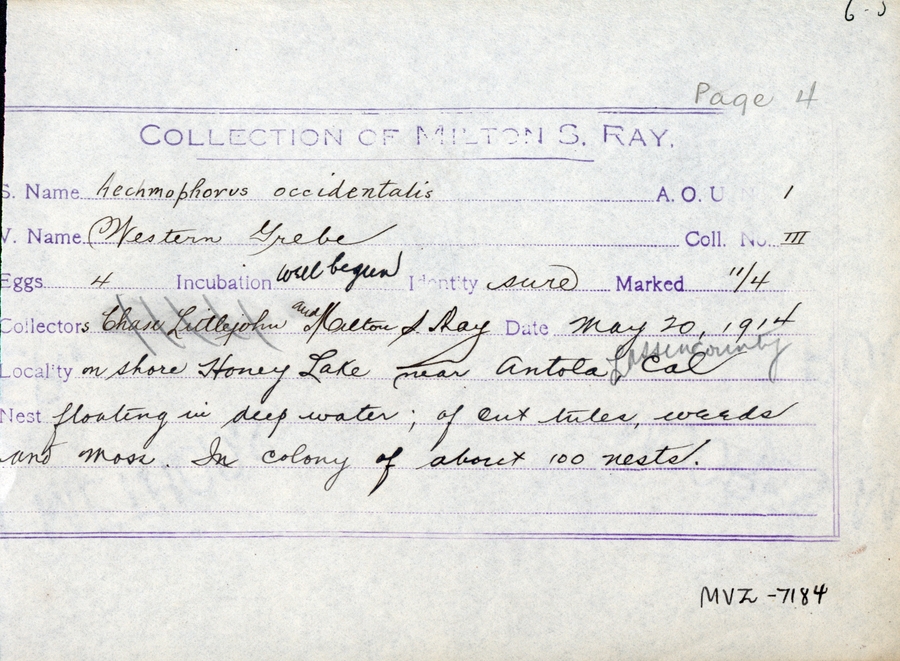 Page 4
COLLECTION OF MILTON S. RAY.
S. Name Aechmophorus occidentalis A. O. U 1
V. Name Western Grebe Coll. No. III
Eggs 4 Incubation well begun Identity sure Marked 11/4
Collectors Chase Littlejohn and Milton S Ray Date May 20, 1914
Lassen County
Locality on shore Honey Lake near Antola, Cal
Nest floating in deep water; of cut tules, weeds
and moss. In colony of about 100 nests.
MVZ -7184